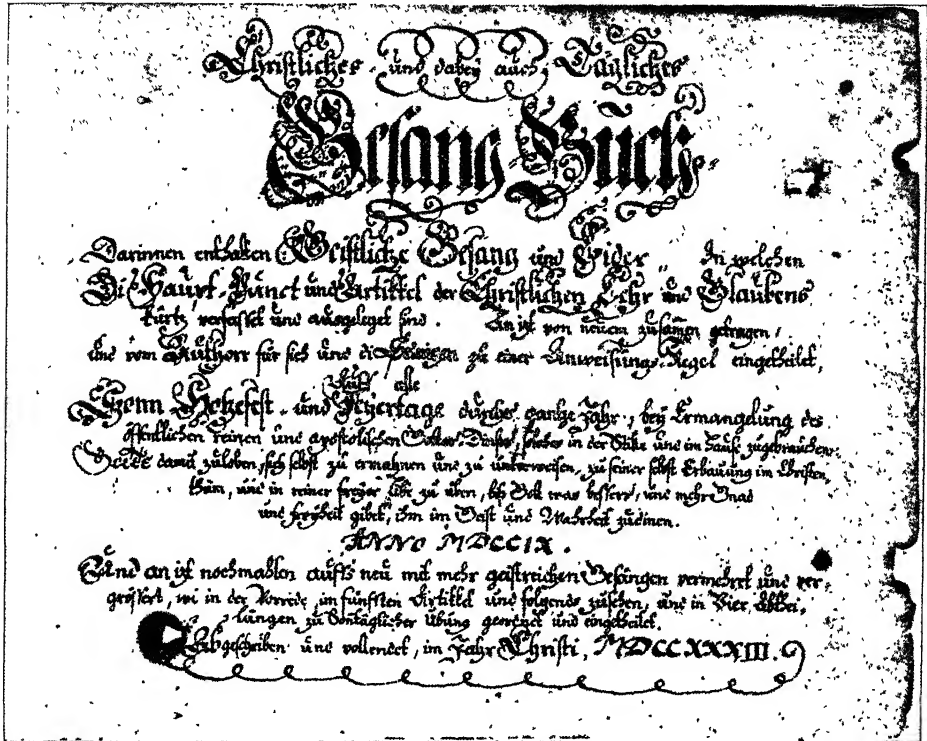 Christliches und dabey auch Tägliches
Gesang Büch
Darinnen enthalten Geistliche Gesäng und Lider, In welchen
Di Haupt-Punct und Artikkel der Christlichen Lehr und Glaubens
kürtz verfasset und ausgeleget sind. An izt von neuem zusamen getragen,
und vom Authore für sich und di Seinigen zu einer Anweisungs-Regel eingetheilet,
Auff alle
Wenn Hohefest- und Feyertage durchs gantze Jahr, bey Ermangelung des
öffentlichen reinen und apostolischen Gottes Dinstes, solches in der Stille und im Hause zugebrauchen.
GOTT damit zuloben, sich selbst zu ermahnen und zu unterweisen, zu seiner selbst Erbauung im Christen,
thum, und in reiner freyer Libe zu üben, biß Gott etwas bessers, und mehr Gnad
und freyheit gibet, ihm im Geist und Wahrheit zudinen.
ANNO MDCCIX.
Und an izt nochmahlen auffs neu mit mehr geistreichen Gesängen vermehret und ver-
grössert, wi in der Vorrede, im fünfften Artikkel und folgends zusehen, und in Vier Abthei-
lungen zu Sontäglicher übung geordnet und eingetheilet.
Abgeschriben und vollendet, im Jahr Christi, MDCCXXXIII.